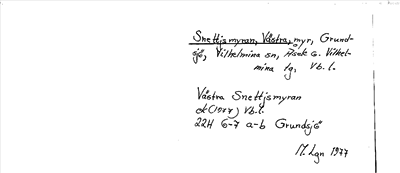 Snettjsmyran, Västra, myr, Grund-
sjö, Vilhelmina sn, Åsele o. Vilhel-
mina tg, Vb. l.
Västra Snettjsmyran
ek (1977) Vb. l.
22H 6-7 a-b Grundsjö
M. Lgn 1977